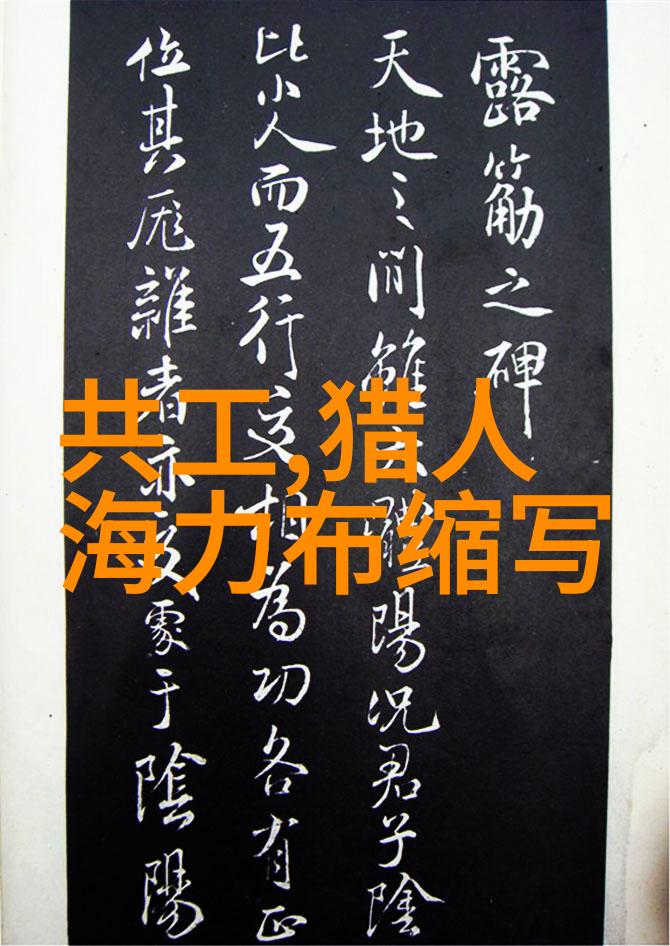 露筋之碑
天地之間雖體陽況君子陰
比小人而五行交相為功各有正
位其厖雜者亦處于陰陽
共工,猎人
海力布缩写